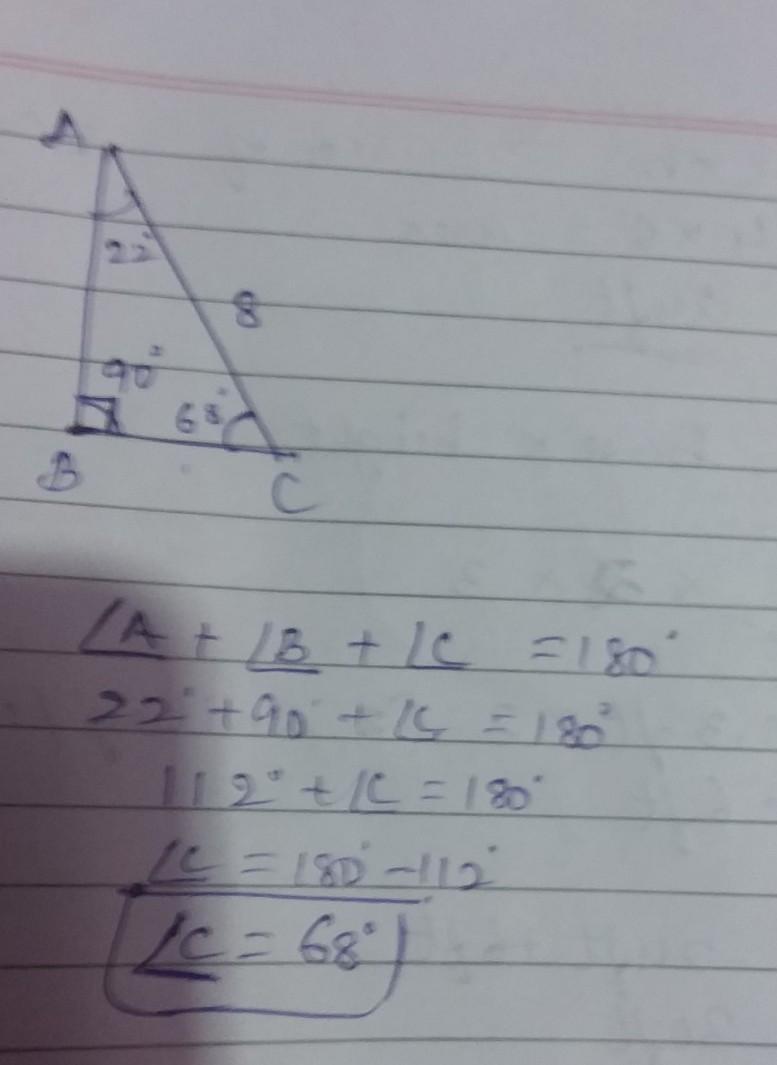 A
22°
8
90°
68°
B
C
∠A + ∠B + ∠C = 180°
22° + 90° + ∠C = 180°
112° + ∠C = 180°
∠C = 180° - 112°
∠C = 68°